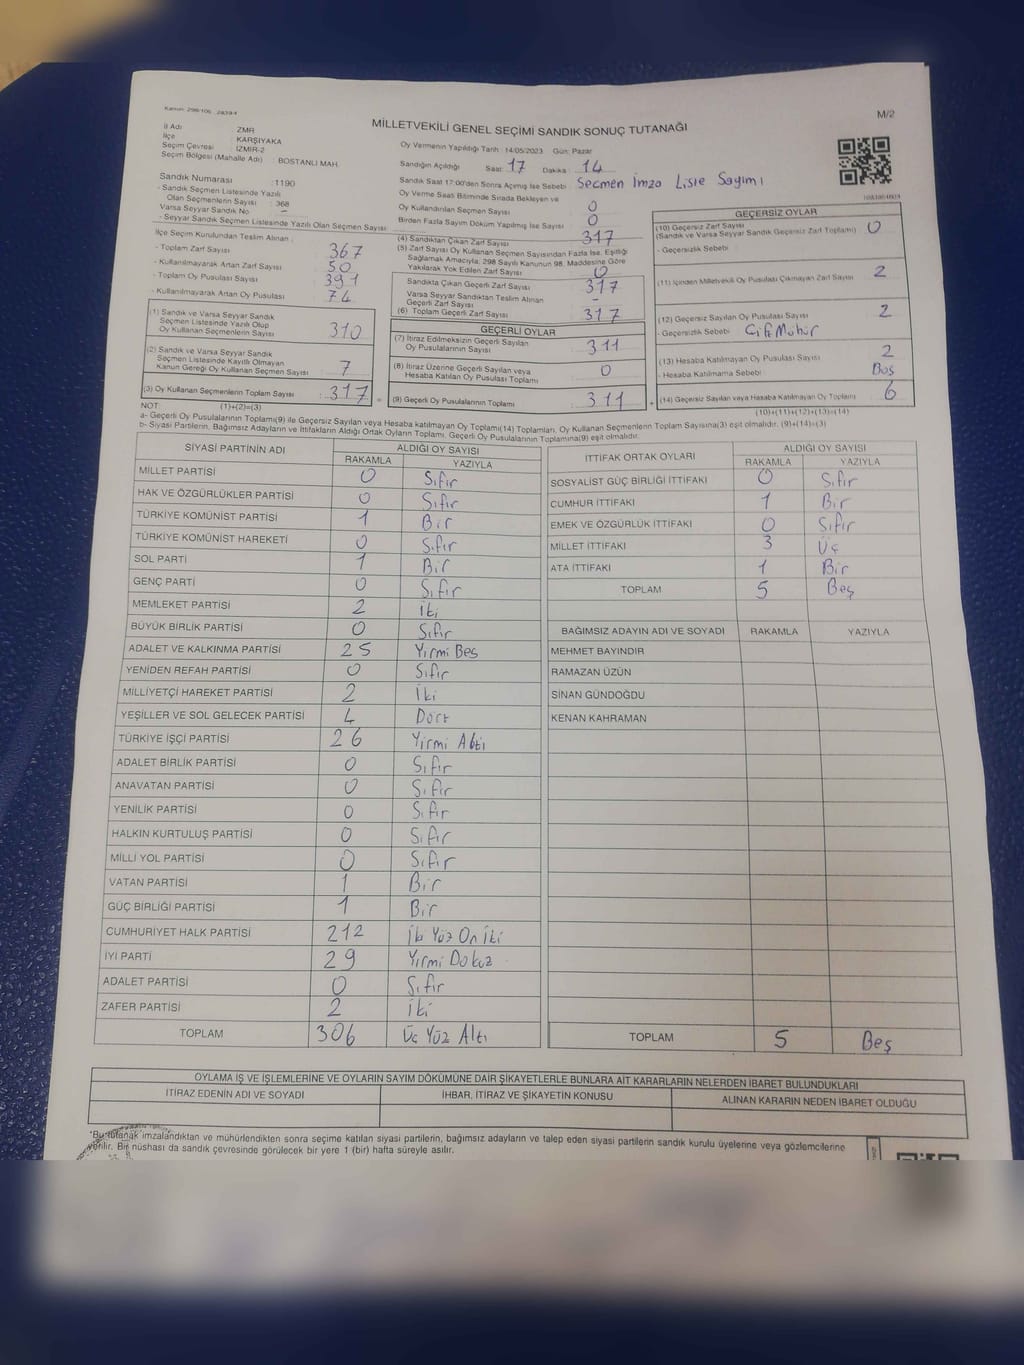 Kanun: 298/106 - 2839/4
M/2
MİLLETVEKİLİ GENEL SEÇİMİ SANDIK SONUÇ TUTANAĞI
İl Adı : ZMR
İlçe : KARŞIYAKA
Seçim Çevresi : İZMİR-2
Seçim Bölgesi (Mahalle Adı) : BOSTANLI MAH.
Sandık Numarası : 1190
- Sandık Seçmen Listesinde Yazılı
Olan Seçmenlerin Sayısı : 368
Varsa Seyyar Sandık No –
- Seyyar Sandık Seçmen Listesinde Yazılı Olan Seçmen Sayısı:
İlçe Seçim Kurulundan Teslim Alınan :
- Toplam Zarf Sayısı 367
- Kullanılmayarak Artan Zarf Sayısı 50
- Toplam Oy Pusulası Sayısı 391
- Kullanılmayarak Artan Oy Pusulası : 74
(1) Sandık ve Varsa Seyyar Sandık
Seçmen Listesinde Yazılı Olup
Oy Kullanan Seçmenlerin Sayısı : 310
(2) Sandık ve Varsa Seyyar Sandık
Seçmen Listesinde Kayıtlı Olmayan
Kanun Gereği Oy Kullanan Seçmen Sayısı : 7
(3) Oy Kullanan Seçmenlerin Toplam Sayısı : 317
(1)+(2)=(3)
Oy Vermenin Yapıldığı Tarih : 14/05/2023 Gün: Pazar
Sandığın Açıldığı Saat: 17 Dakika : 14
Sandık Saat 17:00'den Sonra Açılmış İse Sebebi : Seçmen İmza Liste Sayımı
Oy Verme Saati Bitiminde Sırada Bekleyen ve
Oy Kullandırılan Seçmen Sayısı : 0
Birden Fazla Sayım Döküm Yapılmış İse Sayısı : 0
(4) Sandıktan Çıkan Zarf Sayısı : 317
(5) Zarf Sayısı Oy Kullanan Seçmen Sayısından Fazla İse, Eşitliği
Sağlamak Amacıyla, 298 Sayılı Kanunun 98. Maddesine Göre
Yakılarak Yok Edilen Zarf Sayısı : 0
Sandıkta Çıkan Geçerli Zarf Sayısı : 317
Varsa Seyyar Sandıktan Teslim Alınan
Geçerli Zarf Sayısı : –
(6) Toplam Geçerli Zarf Sayısı : 317
GEÇERLİ OYLAR
(7) İtiraz Edilmeksizin Geçerli Sayılan
Oy Pusulalarının Sayısı : 311
(8) İtiraz Üzerine Geçerli Sayılan veya
Hesaba Katılan Oy Pusulası Toplamı : 0
(9) Geçerli Oy Pusulalarının Toplamı : 311
GEÇERSİZ OYLAR
(10) Geçersiz Zarf Sayısı
(Sandık ve Varsa Seyyar Sandık Geçersiz Zarf Toplamı) : 0
- Geçersizlik Sebebi :
(11) İçinden Milletvekili Oy Pusulası Çıkmayan Zarf Sayısı : 2
(12) Geçersiz Sayılan Oy Pusulası Sayısı : 2
- Geçersizlik Sebebi : Çift Mühür
(13) Hesaba Katılmayan Oy Pusulası Sayısı : 2
- Hesaba Katılmama Sebebi : Boş
(14) Geçersiz Sayılan veya Hesaba Katılmayan Oy Toplamı : 6
(10)+(11)+(12)+(13)=(14)
NOT:
a- Geçerli Oy Pusulalarının Toplamı(9) ile Geçersiz Sayılan veya Hesaba katılmayan Oy Toplamı(14) Toplamları, Oy Kullanan Seçmenlerin Toplam Sayısına(3) eşit olmalıdır. (9)+(14)=(3)
b- Siyasi Partilerin, Bağımsız Adayların ve İttifakların Aldığı Ortak Oyların Toplamı, Geçerli Oy Pusulalarının Toplamına(9) eşit olmalıdır.
SİYASİ PARTİNİN ADI ALDIĞI OY SAYISI
RAKAMLA YAZIYLA
MİLLET PARTİSİ 0 Sıfır
HAK VE ÖZGÜRLÜKLER PARTİSİ 0 Sıfır
TÜRKİYE KOMÜNİST PARTİSİ 1 Bir
TÜRKİYE KOMÜNİST HAREKETİ 0 Sıfır
SOL PARTİ 1 Bir
GENÇ PARTİ 0 Sıfır
MEMLEKET PARTİSİ 2 İki
BÜYÜK BİRLİK PARTİSİ 0 Sıfır
ADALET VE KALKINMA PARTİSİ 25 Yirmi Beş
YENİDEN REFAH PARTİSİ 0 Sıfır
MİLLİYETÇİ HAREKET PARTİSİ 2 İki
YEŞİLLER VE SOL GELECEK PARTİSİ 4 Dört
TÜRKİYE İŞÇİ PARTİSİ 26 Yirmi Altı
ADALET BİRLİK PARTİSİ 0 Sıfır
ANAVATAN PARTİSİ 0 Sıfır
YENİLİK PARTİSİ 0 Sıfır
HALKIN KURTULUŞ PARTİSİ 0 Sıfır
MİLLİ YOL PARTİSİ 0 Sıfır
VATAN PARTİSİ 1 Bir
GÜÇ BİRLİĞİ PARTİSİ 1 Bir
CUMHURİYET HALK PARTİSİ 212 İki Yüz On İki
İYİ PARTİ 29 Yirmi Dokuz
ADALET PARTİSİ 0 Sıfır
ZAFER PARTİSİ 2 İki
TOPLAM 306 Üç Yüz Altı
İTTİFAK ORTAK OYLARI ALDIĞI OY SAYISI
RAKAMLA YAZIYLA
SOSYALİST GÜÇ BİRLİĞİ İTTİFAKI 0 Sıfır
CUMHUR İTTİFAKI 1 Bir
EMEK VE ÖZGÜRLÜK İTTİFAKI 0 Sıfır
MİLLET İTTİFAKI 3 Üç
ATA İTTİFAKI 1 Bir
TOPLAM 5 Beş
BAĞIMSIZ ADAYIN ADI VE SOYADI RAKAMLA YAZIYLA
MEHMET BAYINDIR
RAMAZAN ÜZÜN
SİNAN GÜNDOĞDU
KENAN KAHRAMAN
TOPLAM 5 Beş
OYLAMA İŞ VE İŞLEMLERİNE VE OYLARIN SAYIM DÖKÜMÜNE DAİR ŞİKAYETLERLE BUNLARA AİT KARARLARIN NELERDEN İBARET BULUNDUKLARI
İTİRAZ EDENİN ADI VE SOYADI İHBAR, İTİRAZ VE ŞİKAYETİN KONUSU ALINAN KARARIN NEDEN İBARET OLDUĞU
*Bu tutanak imzalandıktan ve mühürlendikten sonra seçime katılan siyasi partilerin, bağımsız adayların ve talep eden siyasi partilerin sandık kurulu üyelerine veya gözlemcilerine
verilir. Bir nüshası da sandık çevresinde görülecek bir yere 1 (bir) hafta süreyle asılır.